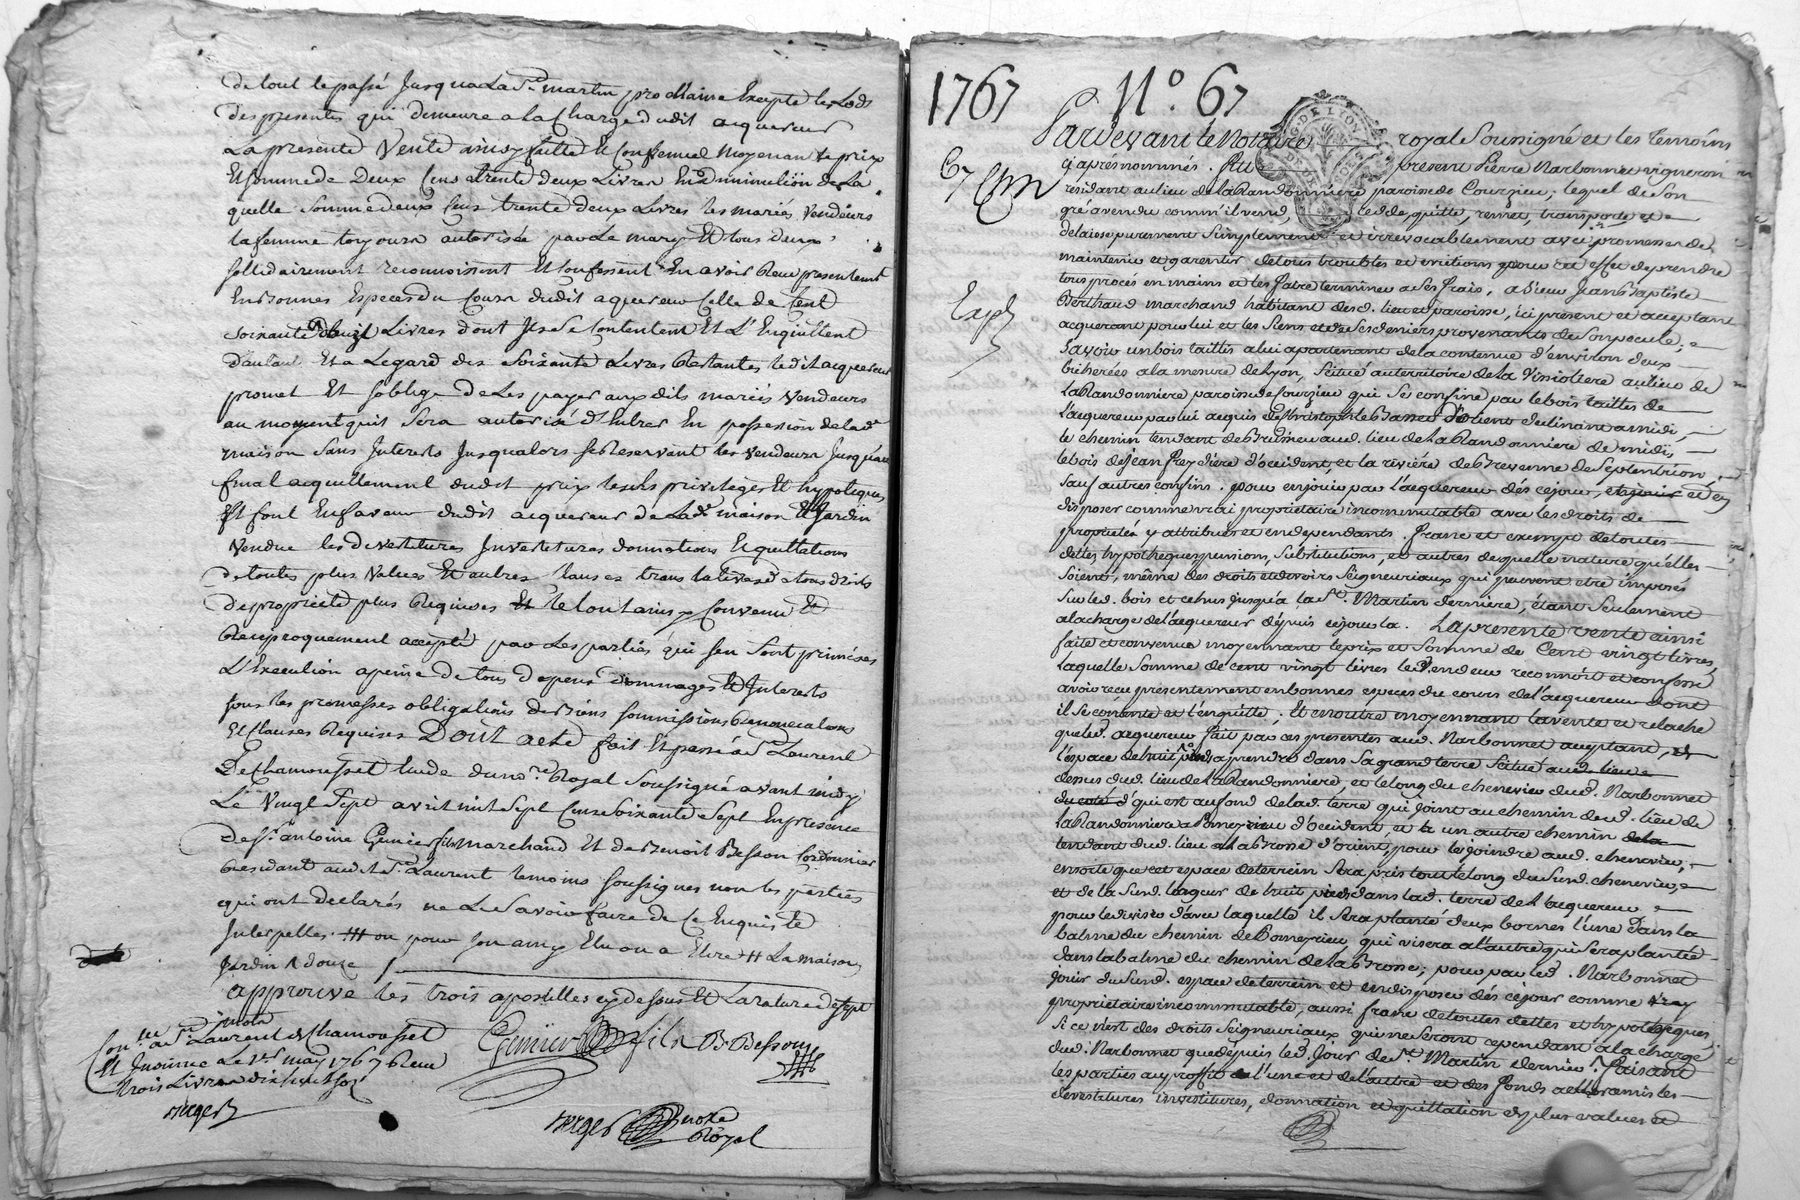 de tout le passé Jusqua la St. martin prochaine Excepte les Lods
des presentes qui demeure a la Charge dudit acquereur
La presente Vente ainsy faitte Et Convenue Moyenant le prix
Et somme de Deux Cens trente deux Livres En diminution de La
quelle somme deux Cens trente deux Livres les mariés Vendeurs
la femme toujours autorisée par Le mary Et tous deux
sollidairement reconnoissent Et Confessent En avoir Receu presentement
En bonnes Especes du Cours dudit acquereur Celle de Cent
soixante douze Livres dont Ils se Contentent Et L'Enquittent
d'autant Et a Legard des soixante Livres Restantes ledit acquereur
promet Et soblige de Les payer aux dits mariés Vendeurs
au moment quil sera autorisé d'Entrer En possession de lade.
maison sans Interets Jusqualors se Reservant les Vendeurs Jusqu'au
final acquittement dudit prix leurs privileges Et hypoteques
Et font En faveur dudit acquereur de Lade. maison Et Jardin
Vendue les devestitures Investitures donnations Et quittations
de toutes plus Values Et autres Clauses translatives de tous droits
de propriete plus Requises Et le tout ainsy Convenu Et
Reciproquement accepté par Les parties qui sen sont promises
L'Execution a peine de tous depens dommages Et Interets
sous les promesses obligations de biens soumissions Renonciations
Et Clauses Requises Dont acte fait Et passé a St. Laurent
De Chamousset Etude du nore. Royal soussigné avant midy
Le Vingt sept avril mil sept Cens soixante sept En presence
de sr. antoine Genier fils marchand Et de Benoit Besson Cordonnier
Residant aud. St. Laurent temoins soussignes non les parties
qui ont declarés ne Le savoir faire de Ce Enquis Et
Interpelles. ## ou pour son amy Elu ou a Elire # La maison
Jardin ^ douze /
approuvé les trois apostilles cy dessus Et La rature de sept
mots
Genier fils B. Besson
Conlle. a St. Laurent de Chamousset
Et Insinué Le 1er may 1767 Receu
trois Livres dix huit sols
Verger
Verger nore
Royal
1767 N°. 67
67
Exp
G. DE LYON
Pardevant le Notaire royal Soussigné et les temoins
cy aprés nommés. fut present Pierre Narbonnet vigneron
residant au lieu de la Randonniere paroisse de Courzieu, lequel de son
gré a vendu comm'il vend, cedde, quitte, remet, transporte et
delaisse purement simplement et irrevocablement avec promesse de
maintenir et garentir de tous troubles et evictions pour cet effet de prendre
tous procés en mains et les faire terminer a ses frais, a sieur Jean Baptiste
Berthaud marchand habitant desd. lieu et paroisse, ici present et acceptant
acquerant pour lui et les siens et de ses deniers provenants de son pecule;
savoir un bois taillis a lui apartenant de la contenue d'environ deux
bicherées a la mesure de Lyon, scitué au territoire de la Vissoliere au lieu de
la Randonniere paroisse de Courzieu qui se confine par le bois taillis de
l'acquereur par lui acquis de Christophle Basset d'orient declinant a midi,
le chemin tendant de Brussieu aud. lieu de la Randonniere de midi,
le bois de Jean Freydiere d'occident, et la riviére de Brevenne de Septentrion,
sauf autres confins. pour en jouir par l'acquereur dés ce jour, et en
disposer comme vrai proprietaire incommutable avec les droits de
proprietés y attribués et en dependants. franc et exempt de toutes
dettes, hypotheques, pensions, substitutions, et autres de quelle nature qu'elles
soient, même des droits et devoirs Seigneuriaux qui peuvent etre imposés
sur led. bois et echus jusqu'a la St. Martin derniere, étant seulement
a la charge de l'acquereur depuis ce jour la. La presente vente ainsi
faite et convenue moyennant le prix et somme de Cent vingt livres,
laquelle somme de cent vingt livres le Vendeur reconnoît et confesse
avoir reçu presentement en bonnes especes du cours de l'acquereur dont
il se contente et l'enquitte. Et en outre moyennant la vente et relache
que led. acquereur fait par ces presentes aud. Narbonnet acceptant,
l'espace de huit pieds a prendre dans sa grand terre scitué aud. lieu
dessus dud. lieu de la Randonniere, et le long du chenevier dud. Narbonnet
du coté d' qui est au fond de lad. terre qui joint au chemin dud. lieu de
la Randonniere a Pomeyrieu d'occident, et a un autre chemin de la
tendant dud. lieu a la Brosse d'orient, pour le joindre aud. chenevier,
ensorte que cet espace de terrein sera pris tout le long du susd. chenevier,
et de la susd. largeur de huit pieds dans lad. terre de l'acquereur
pour le diviser d'avec laquelle il sera planté deux bornes l'une dans la
balme du chemin de Pomeyrieu, qui visera a l'autre qui sera plantée
dans la balme du chemin de la Brosse; pour par led. Narbonnet
jouir du susd. espace de terrein et en disposer dés ce jour comme vray
proprietaire incommutable, aussi franc de toutes dettes et hypotheques
si ce n'est des droits seigneuriaux qui ne seront cependant a la charge
dud. Narbonnet que depuis led. jour de St. Martin dernier. faisant
les parties au proffit de l'une et de l'autre et des fonds cy remis les
devestitures investitures, donnation et quittation de plus values et